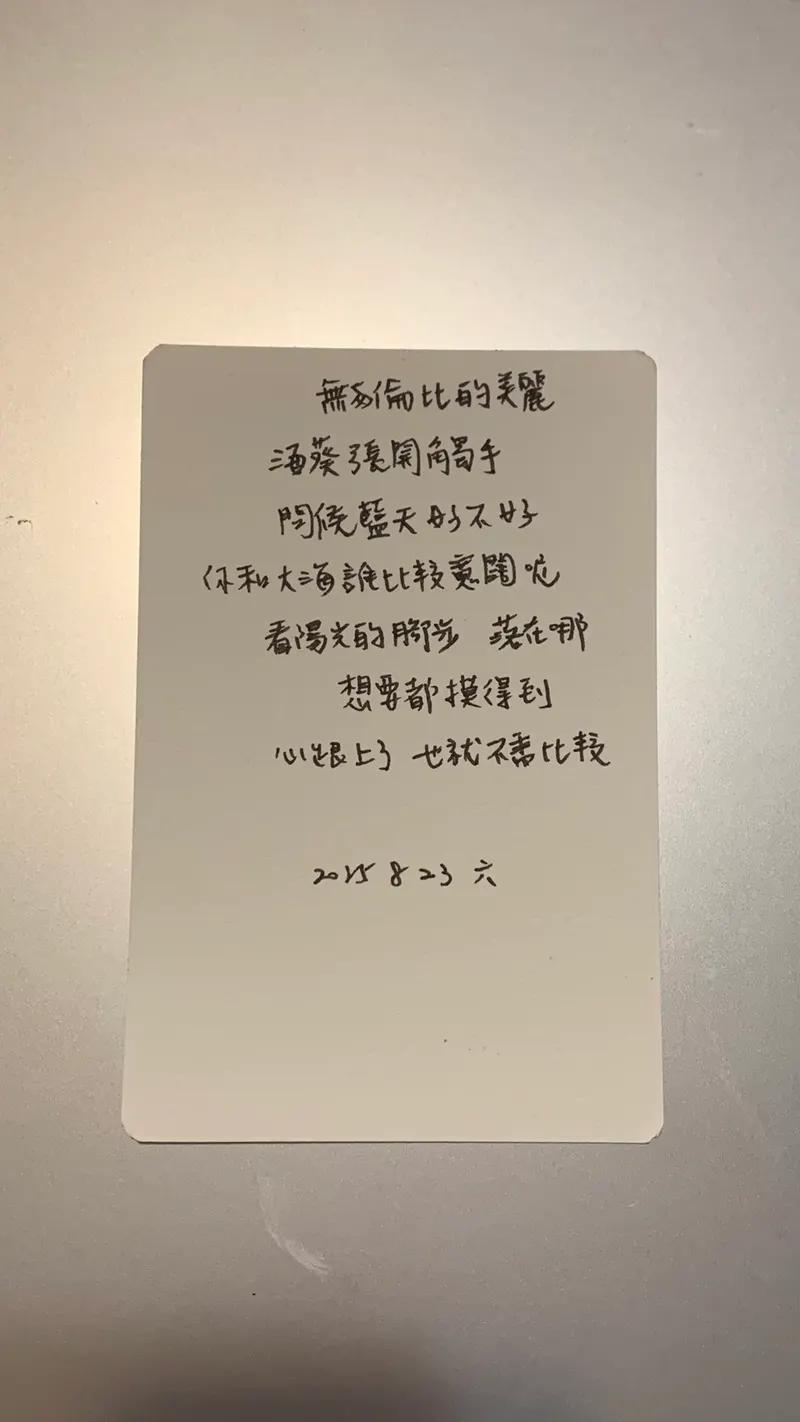 無與倫比的美麗
海葵張開觸手
問候藍天好不好
你和大海誰比較寬闊呢
看陽光的腳步 落在哪
想要都摸得到
心跟上了 也就不需比較
2025 8 23 六